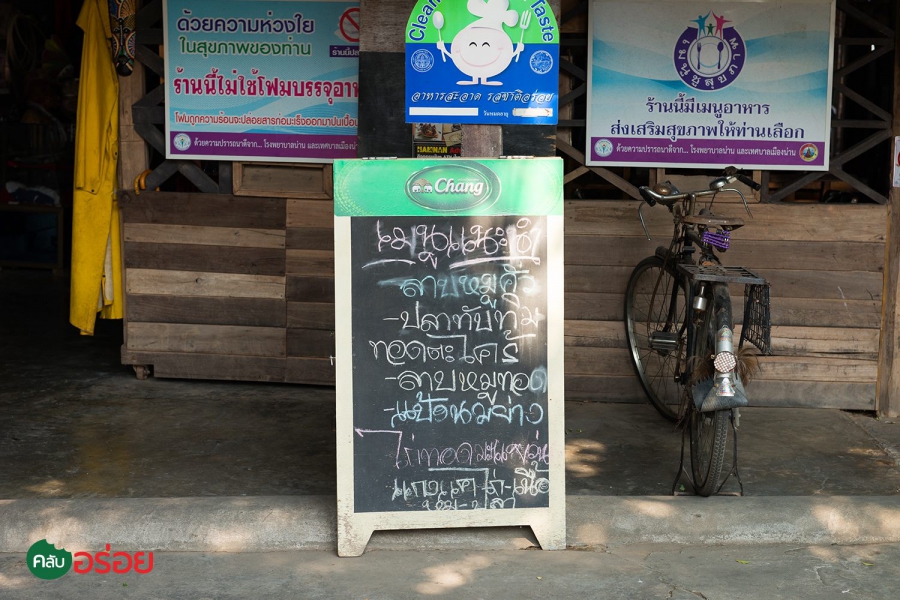 ด้วยความห่วงใย
ในสุขภาพของท่าน
ร้านนี้ไม่ใช้โฟมบรรจุอาห
โฟมถูกความร้อนจะปล่อยสารก่อมะเร็งออกมาปนเปื้อน
ด้วยความปรารถนาดีจาก... โรงพยาบาลน่าน และเทศบาลเมืองน่าน
Clean Taste
อาหารสะอาด รสชาติอร่อย
วันหมดอายุ
เมนูสุขภาพ
ร้านนี้มีเมนูอาหาร
ส่งเสริมสุขภาพให้ท่านเลือก
ด้วยความปรารถนาดีจาก... โรงพยาบาลน่าน และเทศบาลเมืองน่าน
Chang
เมนูแนะนำ
-ลาบหมูคั่ว
-ปลาทับทิม
ทอดตะไคร้
-ลาบหมูทอด
-แป้นมย่าง
ไก่ทอดมะแขว่น
แกงแค ไก่-เนื้อ
หมู-ปลา
คลับ อร่อย